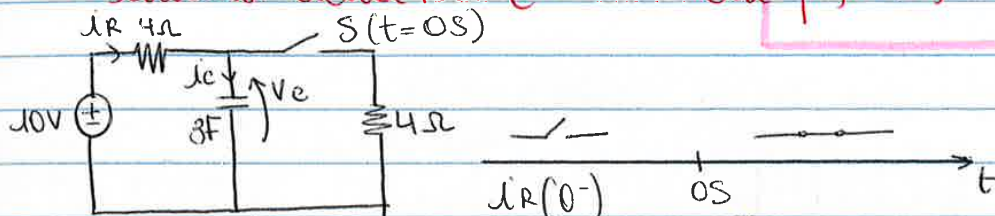 iR 4Ω S(t=0S)
ic Vc
10V 3F 4Ω
iR(0⁻) 0S t